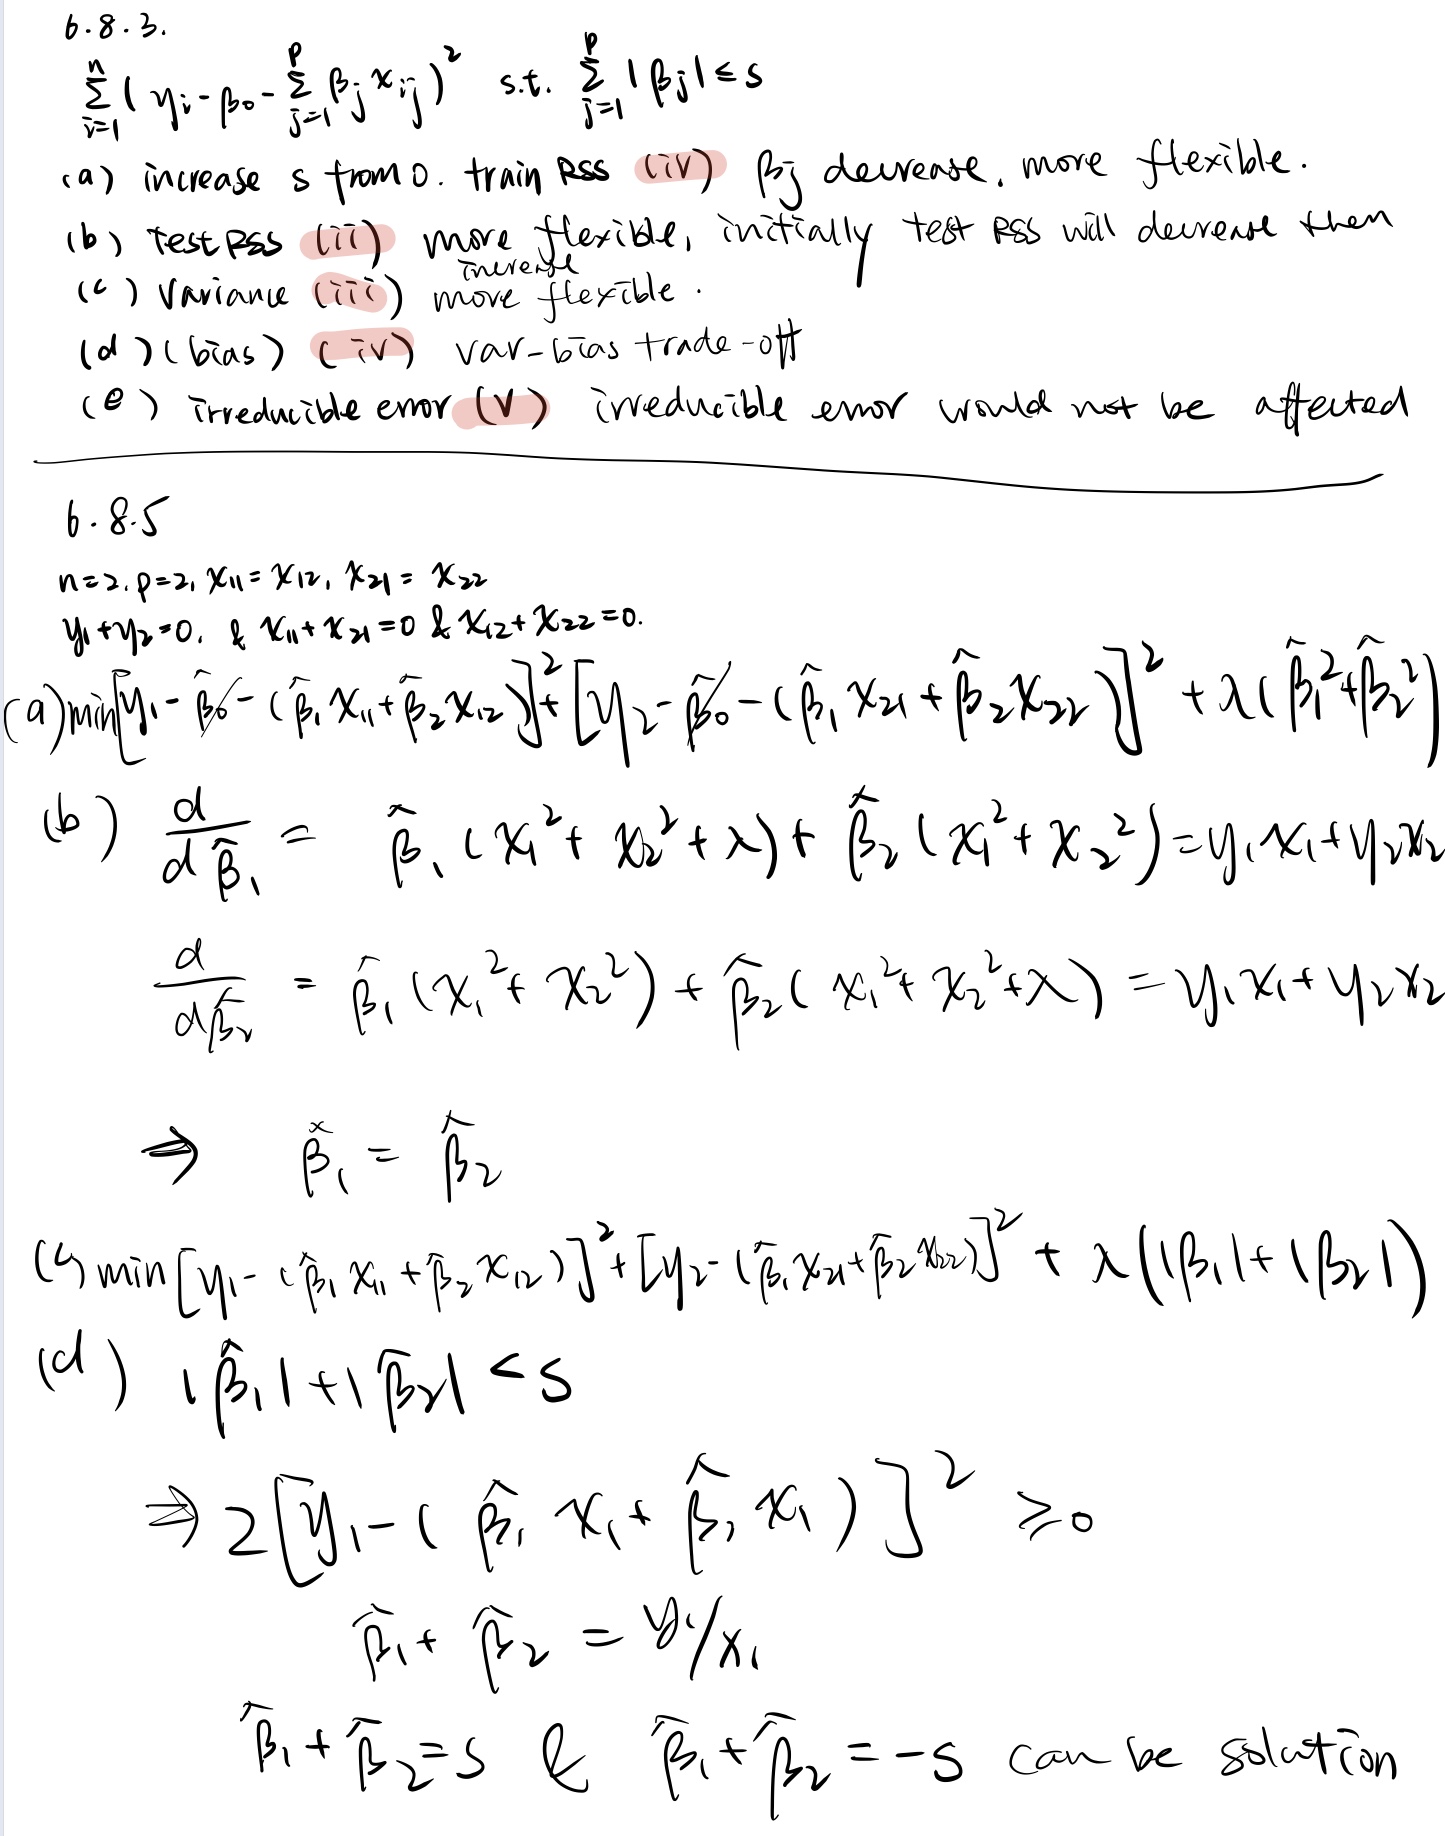 6.8.3.
∑_{i=1}^{n} ( y_i - β_0 - ∑_{j=1}^{p} β_j x_{ij} )^2 s.t. ∑_{j=1}^{p} |β_j| ≤ s
(a) increase s from 0. train RSS (iv) β_j decrease. more flexible.
(b) test RSS (ii) more flexible, initially test RSS will decrease then
increase
(c) variance (iii) more flexible.
(d) (bias) (iv) var-bias trade-off
(e) irreducible error (v) irreducible error would not be affected
6.8.5
n=2. p=2, x_{11} = x_{12}, x_{21} = x_{22}
y_1+y_2=0. & x_{11}+x_{21}=0 & x_{12}+x_{22}=0.
(a) min[y_1 - β̂_0 - (β̂_1 x_{11} + β̂_2 x_{12})]^2 + [y_2 - β̂_0 - (β̂_1 x_{21} + β̂_2 x_{22})]^2 + λ(β̂_1^2 + β̂_2^2)
(b) d/dβ̂_1 = β̂_1 (x_1^2 + x_2^2 + λ) + β̂_2 (x_1^2 + x_2^2) = y_1 x_1 + y_2 x_2
d/dβ̂_2 = β̂_1 (x_1^2 + x_2^2) + β̂_2 (x_1^2 + x_2^2 + λ) = y_1 x_1 + y_2 x_2
⇒ β̂_1 = β̂_2
(c) min [y_1 - (β̂_1 x_{11} + β̂_2 x_{12})]^2 + [y_2 - (β̂_1 x_{21} + β̂_2 x_{22})]^2 + λ(|β_1| + |β_2|)
(d) |β̂_1| + |β̂_2| < s
⇒ 2[y_1 - (β̂_1 x_1 + β̂_2 x_1)]^2 ≥ 0
β̂_1 + β̂_2 = y_1/x_1
β̂_1 + β̂_2 = s & β̂_1 + β̂_2 = -s can be solution